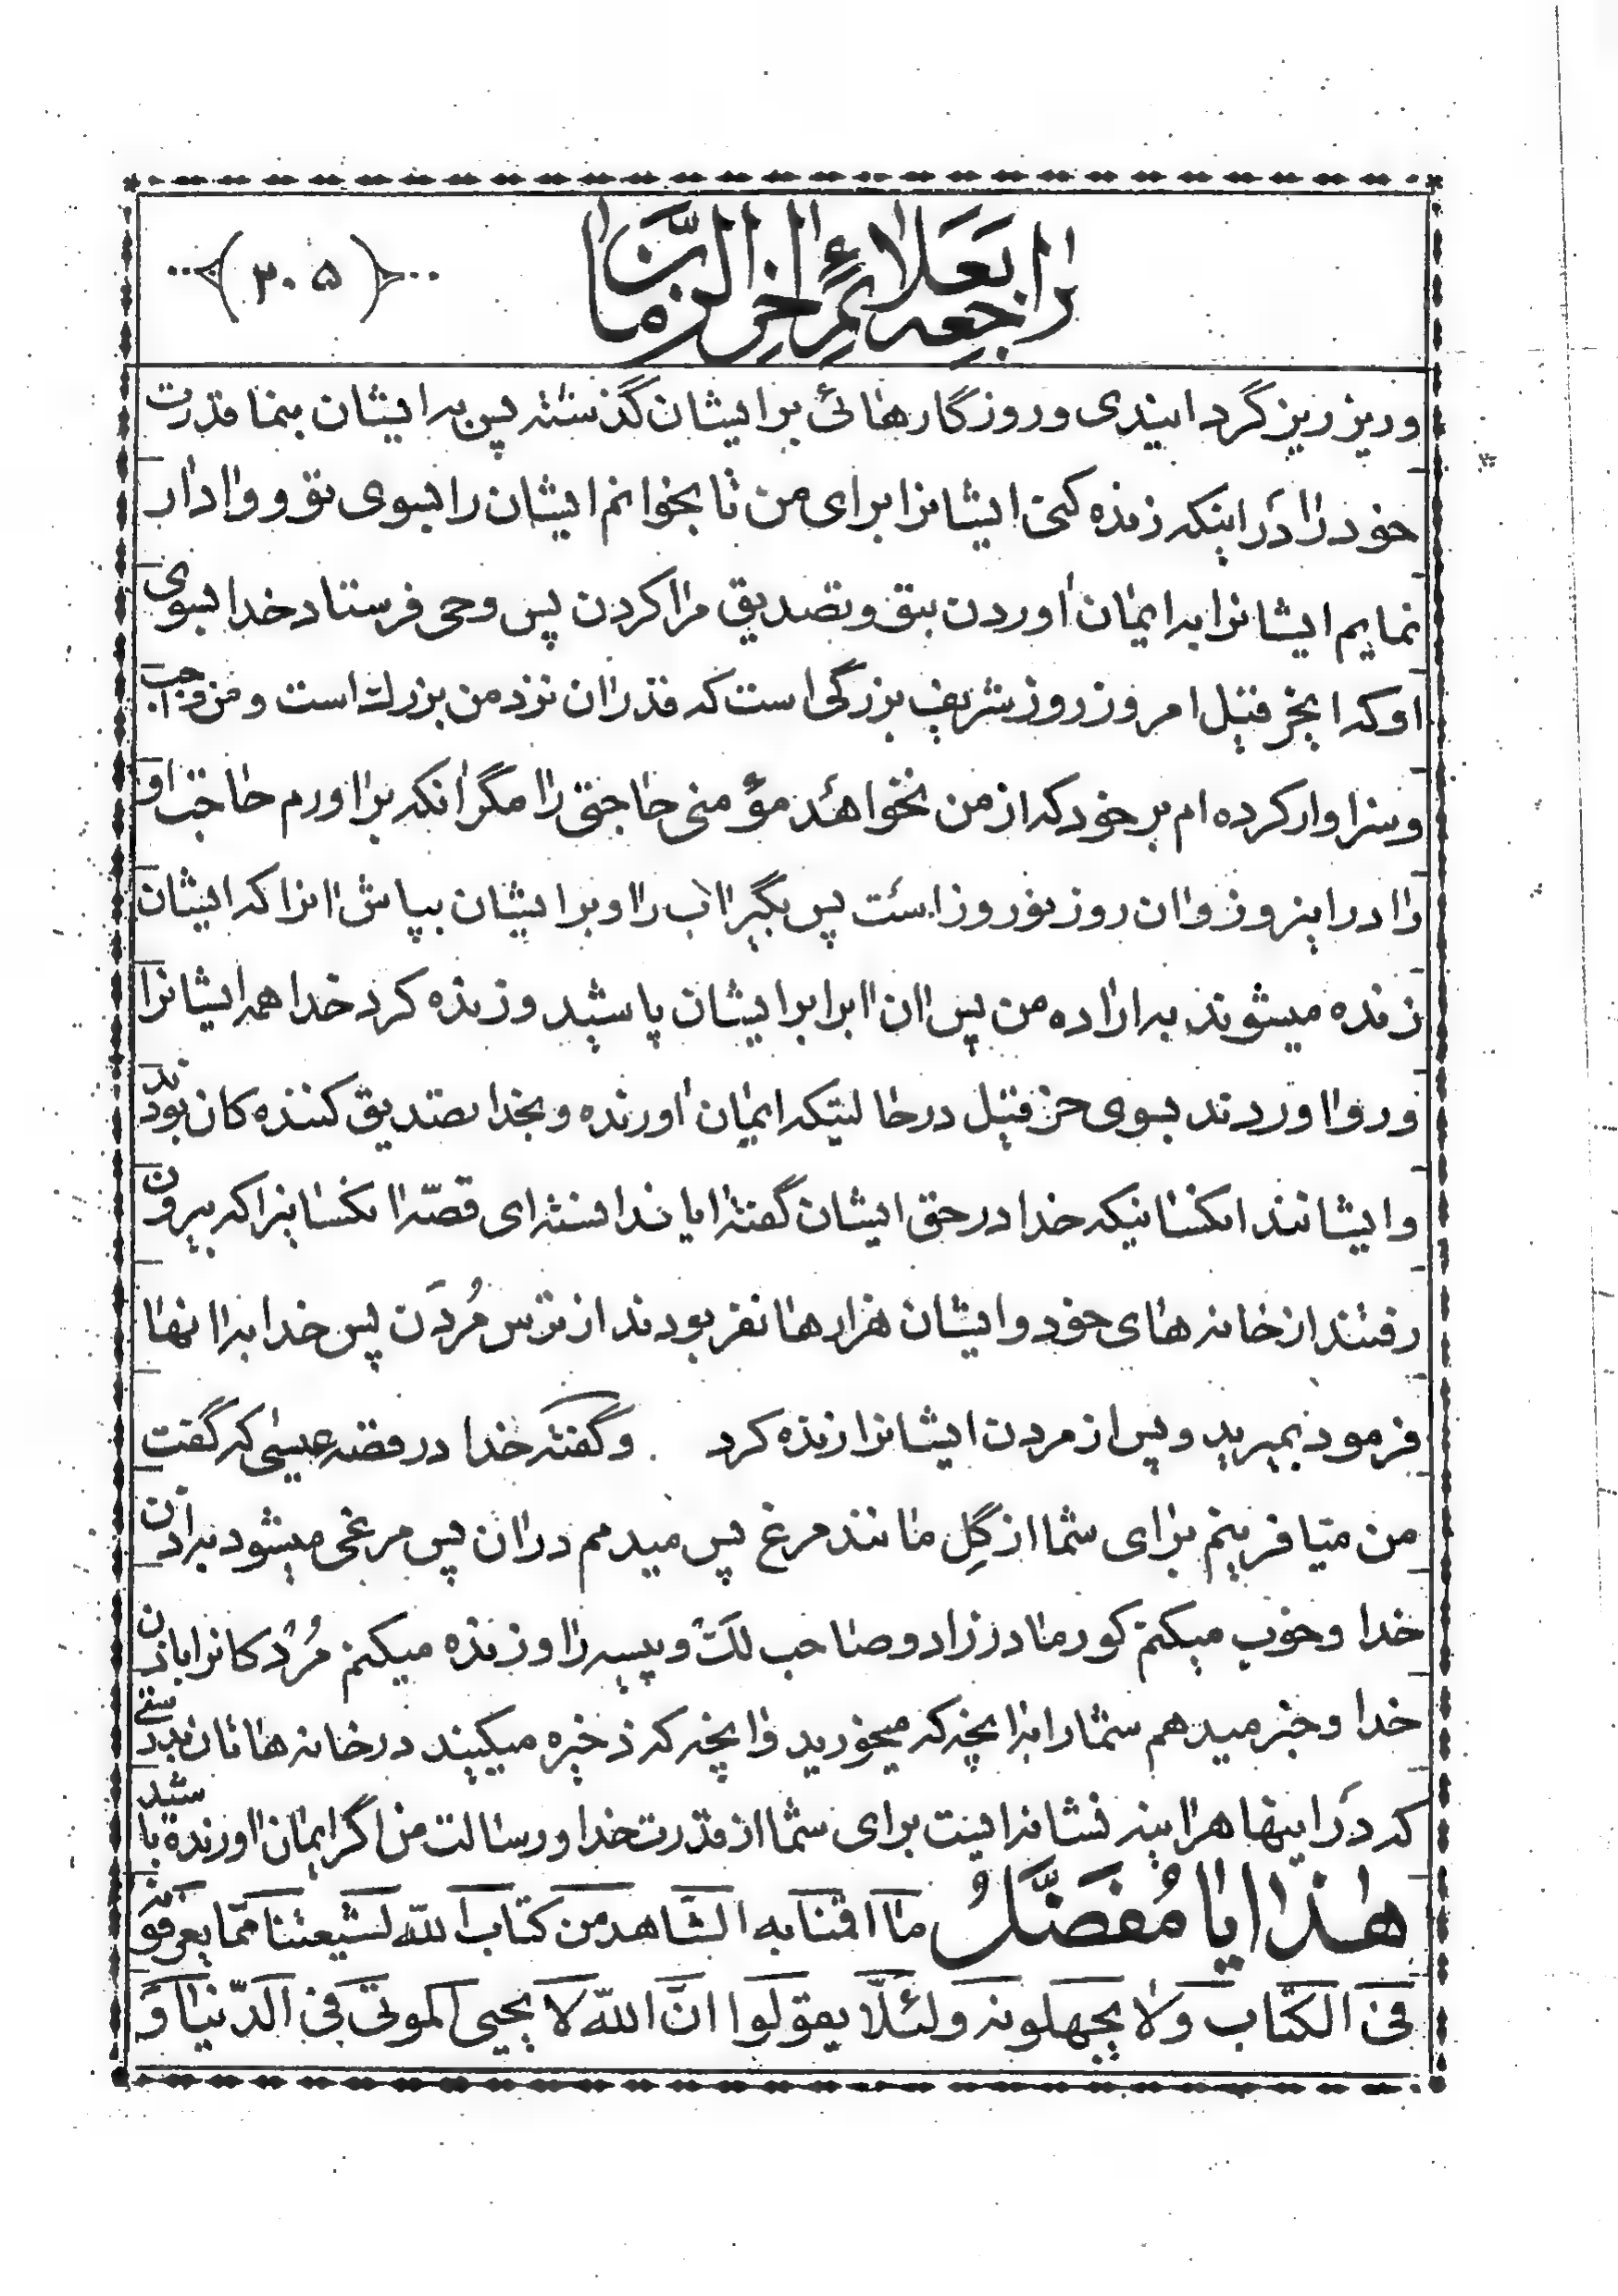 راجعه بعلائم اخر الزمان
(۳۰۵)
و ریز ریز گردانیدی و روزگارهائی بر ایشان گذشته پس به ایشان بنما قدرت
خود را در اینکه زنده کنی ایشانرا برای من تا بخوانم ایشان را بسوی تو و وادار
نمایم ایشانرا به ایمان اوردن بتو و تصدیق مرا کردن پس وحی فرستاد خدا بسوی
او که ایحزقیل امروز روز شریف بزرگی است که قدر ان نزد من بزرك است و من واجب
و سزاوار کرده ام بر خود که از من نخواهد مؤمنی حاجتی را مگر انکه براورم حاجت او
را در اینروز و ان روز نوروز است پس بگیر اب را و بر ایشان بپاش انرا که ایشان
زنده میشوند به اراده من پس ان ابرا بر ایشان پاشید و زنده کرد خدا همه ایشانرا
و رو اوردند بسوی حزقیل در حالیتکه ایمان اورنده و بخدا تصدیق کننده کان بودند
و ایشانند انکسانیکه خدا در حق ایشان گفته ایا ندانسته ای قصّه انکسانیرا که بیرون
رفتند از خانه های خود و ایشان هزارها نفر بودند از ترس مُردَن پس خدا به انها
فرمود بمیرید و پس از مردن ایشانرا زنده کرد . و گفته خدا در قصه عیسی که گفت
من میافرینم برای شما از گِل مانند مرغ پس میدمم در ان پس مرغی میشود به اذن
خدا و خوب میکنم کور مادرزاد و صاحب لک و پیسه را و زنده میکنم مُردکانرا باذن
خدا و خبر میدهم شما را به انچه که میخورید و انچه که ذخیره میکنید در خانه هاتان بدرستی
که دَر اینها هراینه نشانه ایست برای شما از قدرت خدا و رسالت من اگر ایمان اورنده باشید
هٰذا یا مُفَضَّلُ ما اقمنا به الشّاهد من کتاب اللّه لشیعتنا ممّا یعرفونه
فی الکتاب وَلا یجهلونه وَلئلّا یقولوا انَّ اللّه لا یحیی الموتی فی الدّنیا وَ